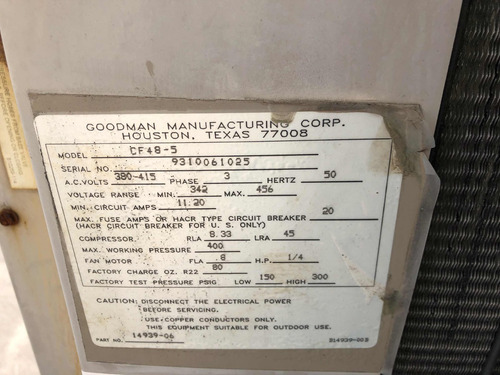 GOODMAN MANUFACTURING CORP.
HOUSTON, TEXAS 77008
MODEL CF48-5
SERIAL NO. 9310061025
A.C.VOLTS 380-415 PHASE 3 HERTZ 50
VOLTAGE RANGE: MIN. 342 MAX. 456
MIN. CIRCUIT AMPS 11.20
MAX. FUSE AMPS OR HACR TYPE CIRCUIT BREAKER 20
(HACR CIRCUIT BREAKER FOR U.S. ONLY)
COMPRESSOR RLA 8.33 LRA 45
MAX. WORKING PRESSURE 400
FAN MOTOR FLA .8 H.P. 1/4
FACTORY CHARGE OZ. R22 80
FACTORY TEST PRESSURE PSIG LOW 150 HIGH 300
CAUTION: DISCONNECT THE ELECTRICAL POWER
BEFORE SERVICING.
USE COPPER CONDUCTORS ONLY.
THIS EQUIPMENT SUITABLE FOR OUTDOOR USE.
PART NO. 14939-06